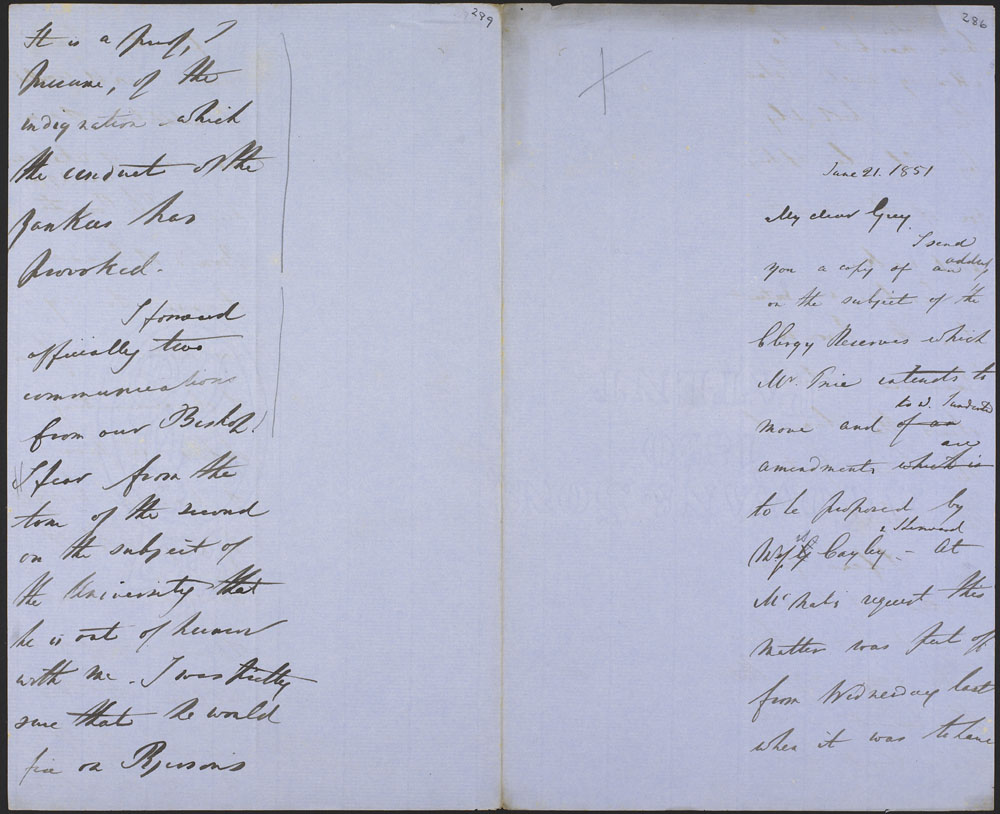 289
It is a proof, I
presume, of the
indignation which
the conduct of the
Yankees has
provoked.
I forward
officially two
communications
from our Bishop.
I fear from the
tone of the second
on the subject of
the University that
he is out of humor
with me. I was pretty
sure that he would
fix on Ryersons
286
June 21. 1851
My dear Grey
I send
you a copy of an address
on the subject of the
Clergy Reserves which
Mr. Price intends to
move and of an
amendments which is are
to be proposed by
& Sherwood
Cayley - At
McNab's request this
matter was put off
from Wednesday last
when it was to have